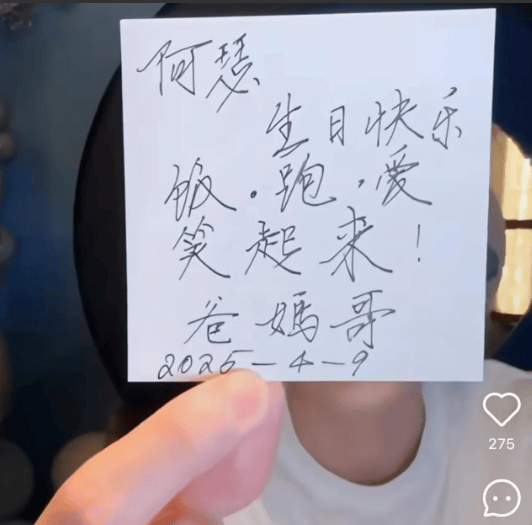 阿瑟
生日快乐
饭.跑.爱
笑起来!
爸妈哥
2025-4-9
275